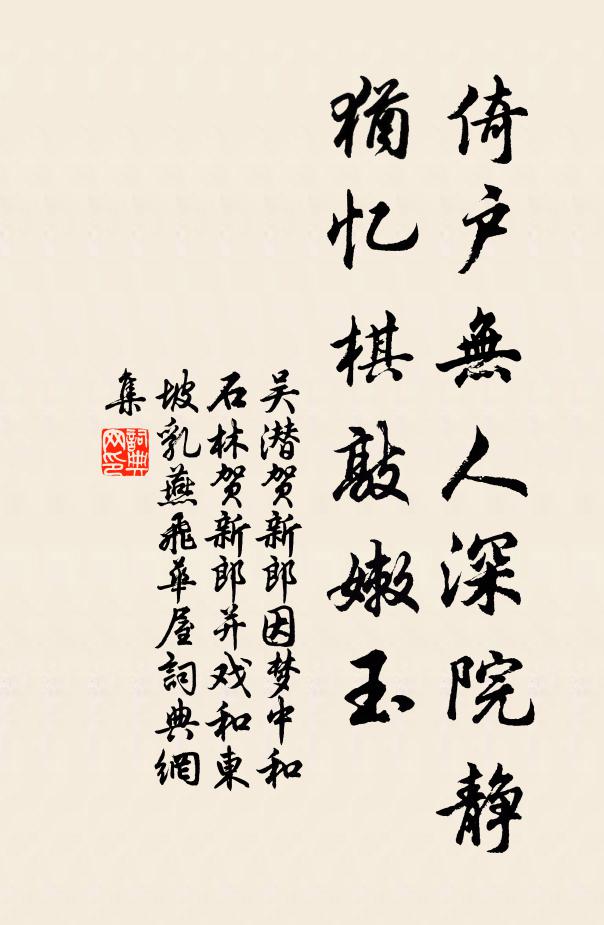 倚户無人深院静
猶忆棋敲嫩玉
吴潜贺新郎因梦中和
石林贺新郎并戏和東
坡乳燕飛華屋詞典網
集
詞典
网印